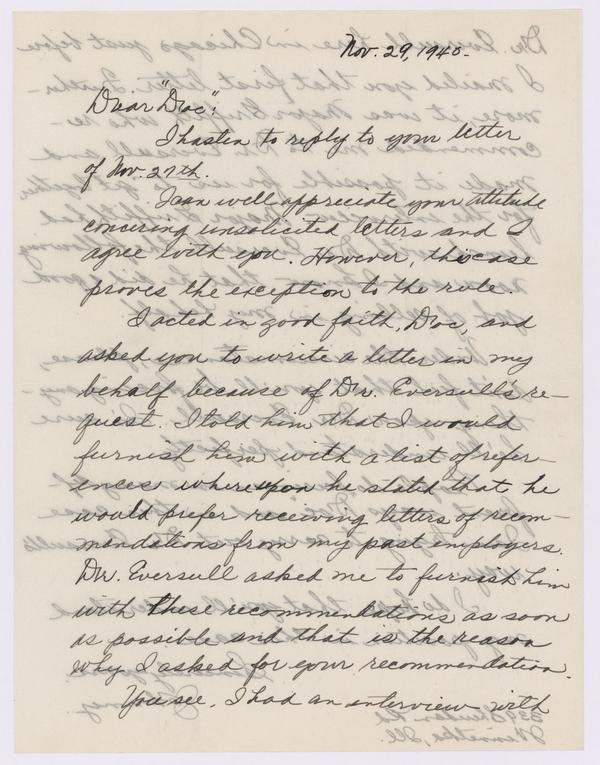 Nov. 29, 1940.
Dear "Doc":
I hasten to reply to your letter
of Nov. 27th.
I can well appreciate your attitude
concering unsolicited letters and I
agree with you. However, this case
proves the exception to the rule.
I acted in good faith, Doc, and
asked you to write a letter in my
behalf because of Dr. Eversull's re-
quest. I told him that I would
furnish him with a list of refer-
ences whereupon he stated that he
would prefer receiving letters of recom-
mendations from my past employers.
Dr. Eversull asked me to furnish him
with these recommendations as soon
as possible and that is the reason
why I asked for your recommendation.
You see, I had an interview with